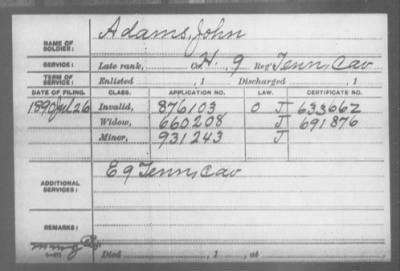 Adams, John
NAME OF SOLDIER:
SERVICE: Late rank, Co. H. 9 Reg't Tenn, Cav
TERM OF SERVICE: Enlisted , 1 Discharged , 1
DATE OF FILING. CLASS. APPLICATION NO. LAW. CERTIFICATE NO.
1890 Jul 26 Invalid, 876103 O J 633662
Widow, 660208 J 691876
Minor, 931243 J
ADDITIONAL SERVICES: E 9 Tenn, Cav
REMARKS:
Died , 1 , at